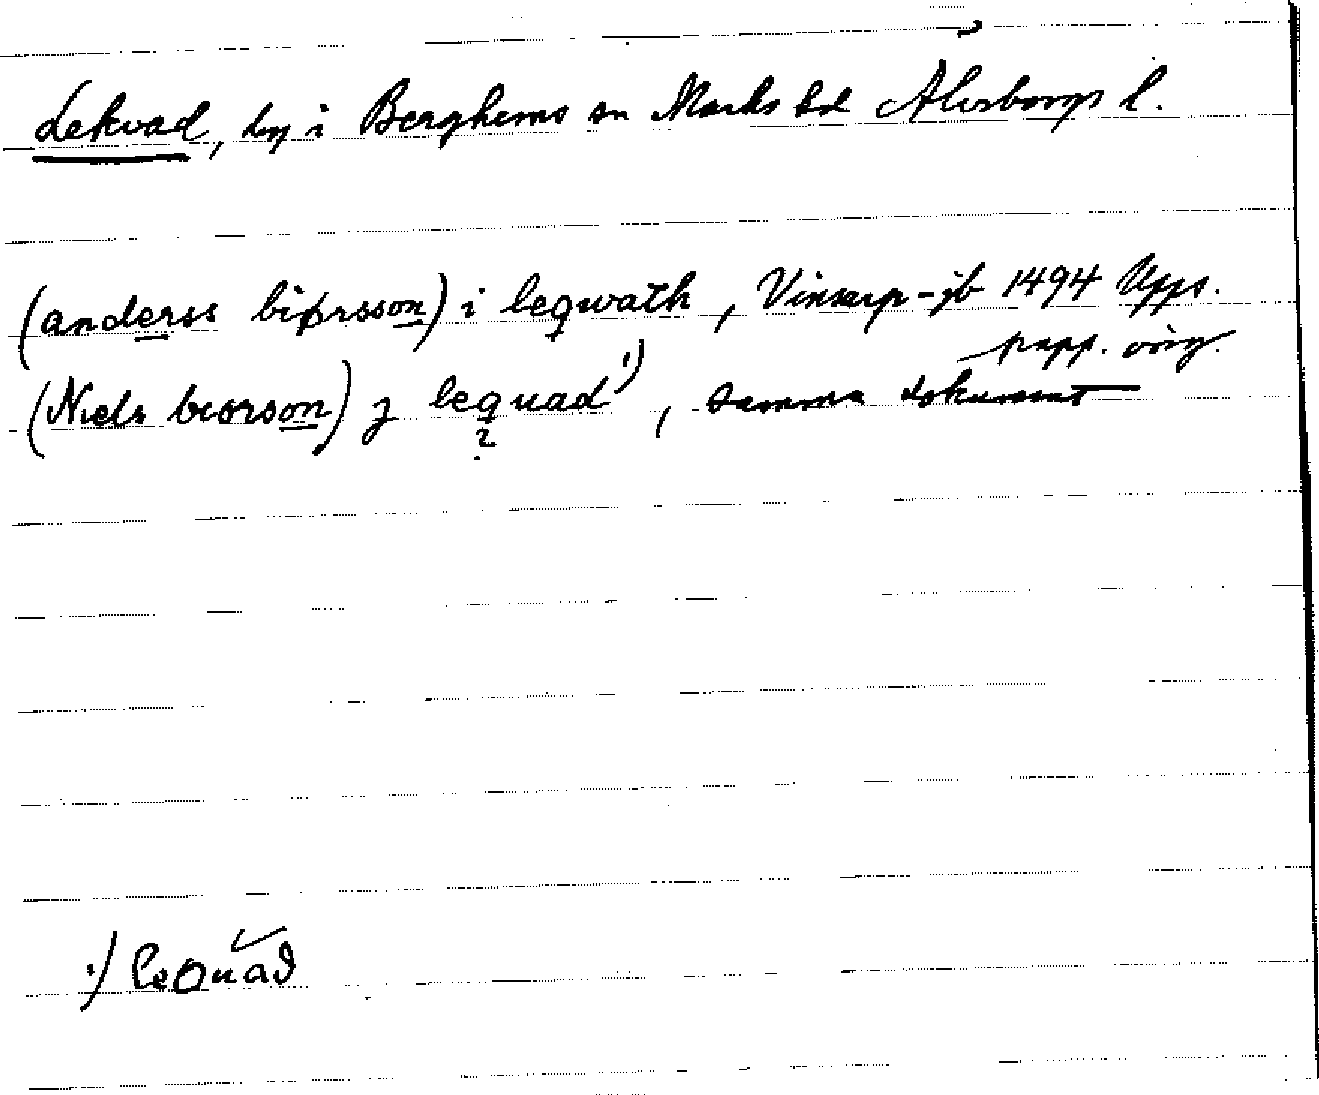 Lekvad, by i Berghems sn Marks hd Älvsborgs l.
(anderss biørsson) i leqwath, Vinsarp-jb 1494 Upps.
papp. orig.
(Niels biorson) j lequad ¹), samma dokument
?
¹) lequad